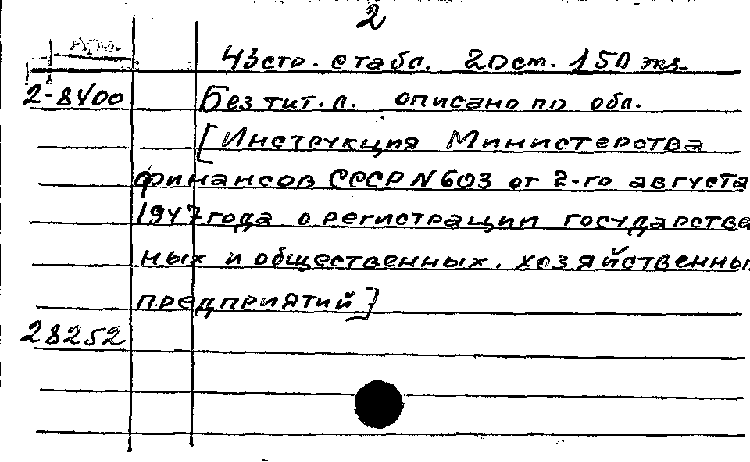 2
Арм.
43стр. с табл. 20см. 150 экз.
2-8400 Без тит. л. описано по обл.
[Инструкция Министерства
финансов СССР N 603 от 2-го августа
1947 года о регистрации государстве
ных и общественных, хозяйственны
предприятий]
28252